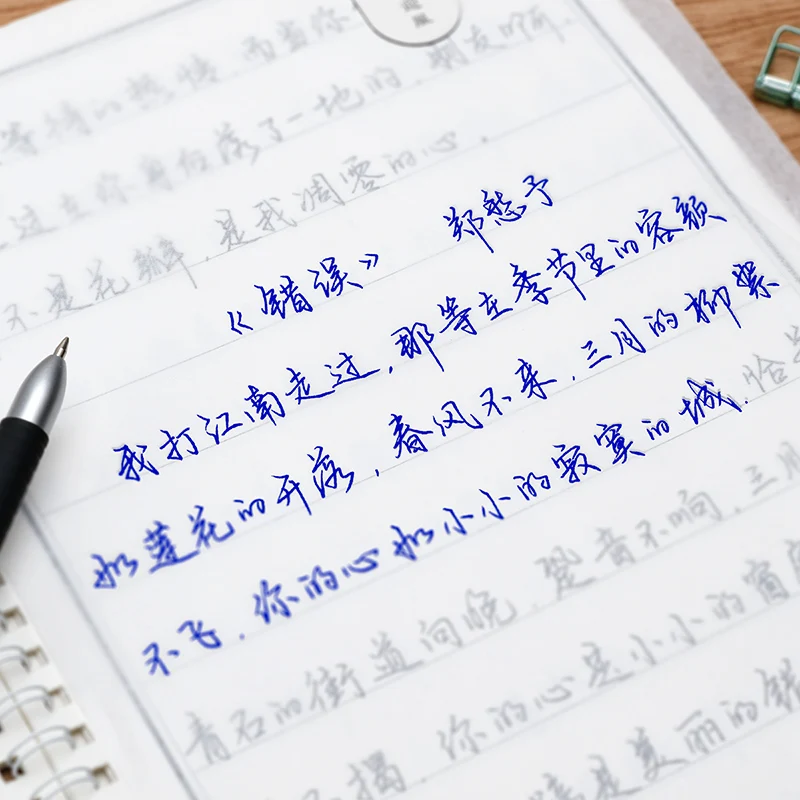 等待的热情,而当你
过在你身后落了一地的,朋友啊.
不是花瓣,是我凋零的心.
《错误》 郑愁予
我打江南走过,那等在季节里的容颜
如莲花的开落,春风不来,三月的柳絮
不飞,你的心如小小的寂寞的城,恰若
青石的街道向晚,跫音不响,三月
不揭,你的心是小小的窗
蹄是美丽的错